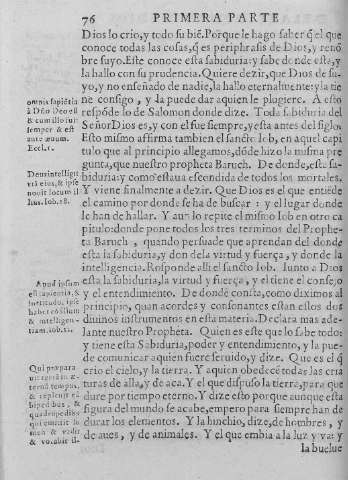 76 PRIMERA PARTE
Dios lo crio, y todo su biẽ. Porque le hago saber q̃ el que
conoce todas las cosas, q̃ es periphrasis de Dios, y renõ
bre suyo. Este conoce esta sabiduria: y sabe donde esta, y
la hallo con su prudencia. Quiere dezir, que Dios de su-
yo, y no enseñado de nadie, la hallo eternalmente: y la tie
ne consigo, y la puede dar aquien le plugiere. A esto
respõde lo de Salomon donde dize. Toda sabiduria del
Señor Dios es, y con el fue siempre, y esta antes del siglo.
Esto mismo affirma tambien el sancto Iob, en aquel capi
tulo que al principio allegamos, dõde hizo la misma pre
gunta, que nuestro propheta Baruch. De donde, esta sa-
biduria: y como estaua escondida de todos los mortales.
Y viene finalmente a dezir. Que Dios es el que entiẽde
el camino por donde se ha de buscar: y el lugar donde
la han de hallar. Y aun lo repite el mismo Iob en otro ca
pitulo: donde pone todos los tres terminos del Prophe-
ta Baruch, quando persuade que aprendan del donde
esta la sabiduria, y donde la virtud y fuerça, y donde la
intelligencia. Responde alli el sancto Iob. Iunto a Dios
esta la sabiduria, la virtud y fuerça, y el tiene el consejo
y el entendimiento. De donde consta, como diximos al
principio, quan acordes y consonantes estan ellos dos
diuinos instrumentos en esta materia. Declara mas ade-
lante nuestro Propheta. Quien es este que lo sabe todo:
y tiene esta Sabiduria, poder y entendimiento, y la pue-
de comunicar aquien fuere seruido, y dize. Que es el q̃
crio el cielo, y la tierra. Y aquien obedecẽ todas las cria
turas de alla, y de aca. Y el que dispuso la tierra, para que
dure por tiempo eterno. Y dize esto porque aunque esta
figura del mundo se acabe, empero para siempre han de
durar los elementos. Y la hinchio, dize, de hombres, y
de aues, y de animales. Y el que embia a la luz y va: y
la buelue
omnis sapiẽtia
à Dño Deo est
& cum illo fuit
semper & est
ante æuum.
Eccl. 1.
Deus intelligit
viã eius, & ipse
nouit locum il
lius. Iob. 28.
Apud ipsum
est sapientia, &
fortitudo, ipse
habet cõsilium
& intelligen-
tiam. Iob. 12.
Qui præpara
uit terrã in æ-
terno tempore,
& repleuit eã
bipedibus, &
quadrupedibus
qui emittit lu
men & vadit
& vocabit il-